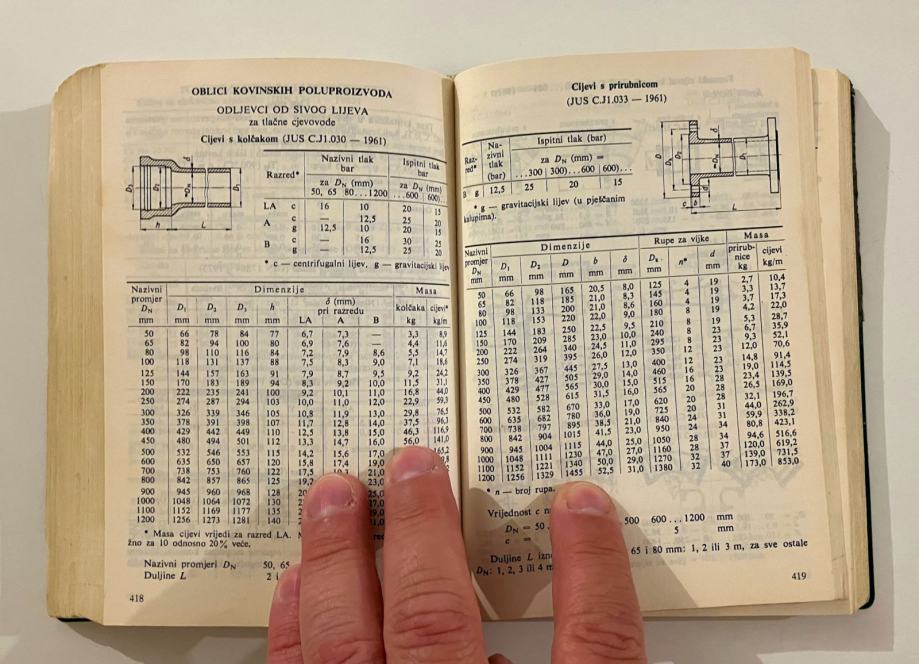 OBLICI KOVINSKIH POLUPROIZVODA
ODLJEVCI OD SIVOG LIJEVA
za tlačne cjevovode
Cijevi s kolčakom (JUS C.J1.030 — 1961)
Razred* Nazivni tlak bar Ispitni tlak bar
za DN (mm) za DN (mm)
50, 65 80...1200 ...600 600...
LA c 16 10 20 15
A c — 12,5 25 20
g 12,5 10 20 15
B c — 16 30 25
g — 12,5 25 20
* c — centrifugalni lijev, g — gravitacijski lijev
Nazivni promjer Dimenzije Masa
DN D1 D2 D3 h δ (mm) pri razredu kolčaka cijevi*
mm mm mm mm mm LA A B kg kg/m
50 66 78 84 77 6,7 7,3 — 3,3 8,9
65 82 94 100 80 6,9 7,6 — 4,4 11,6
80 98 110 116 84 7,2 7,9 8,6 5,5 14,7
100 118 131 137 88 7,5 8,3 9,0 7,1 18,6
125 144 157 163 91 7,9 8,7 9,5 9,2 24,2
150 170 183 189 94 8,3 9,2 10,0 11,5 31,1
200 222 235 241 100 9,2 10,1 11,0 16,8 44,0
250 274 287 294 103 10,0 11,0 12,0 22,9 59,3
300 326 339 346 105 10,8 11,9 13,0 29,8 76,5
350 378 391 398 107 11,7 12,8 14,0 37,5 96,3
400 429 442 449 110 12,5 13,8 15,0 46,3 116,9
450 480 494 501 112 13,3 14,7 16,0 56,0 141,0
500 532 546 553 115 14,2 15,6 17,0
600 635 650 657 120 15,8 17,4 19,0
700 738 753 760 122 17,5
800 842 857 865 125
900 945 960 968 128
1000 1048 1064 1072 130
1100 1152 1169 1177 135
1200 1256 1273 1281 140
* Masa cijevi vrijedi za razred LA.
žno za 10 odnosno 20% veće.
Nazivni promjeri DN 50, 65
Duljine L 2 i
418
Cijevi s prirubnicom
(JUS C.J1.033 — 1961)
Razred* Nazivni tlak (bar) Ispitni tlak (bar)
za DN (mm) =
...300 300)...600 600)...
B g 12,5 25 20 15
* g — gravitacijski lijev (u pješčanim
kalupima).
Nazivni promjer Dimenzije Rupe za vijke Masa
DN D1 D2 D b δ Dk n* d prirubnice cijevi
mm mm mm mm mm mm mm mm kg kg/m
50 66 98 165 20,5 8,0 125 4 19 2,7 10,4
65 82 118 185 21,0 8,3 145 4 19 3,3 13,7
80 98 133 200 21,0 8,6 160 4 19 3,7 17,3
100 118 153 220 22,0 9,0 180 8 19 4,2 22,0
125 144 183 250 22,5 9,5 210 8 19 5,3 28,7
150 170 209 285 23,0 10,0 240 8 23 6,7 35,9
200 222 264 340 24,5 11,0 295 8 23 9,3 52,1
250 274 319 395 26,0 12,0 350 12 23 12,0 70,6
300 326 367 445 27,5 13,0 400 12 23 14,8 91,4
350 378 427 505 29,0 14,0 460 16 23 19,0 114,5
400 429 477 565 30,0 15,0 515 16 28 23,4 139,5
450 480 528 615 31,5 16,0 565 20 28 26,5 169,0
500 532 582 670 33,0 17,0 620 20 28 32,1 196,7
600 635 682 780 36,0 19,0 725 20 31 44,0 262,9
700 738 797 895 38,5 21,0 840 24 31 59,9 338,2
800 842 904 1015 41,5 23,0 950 24 34 80,8 423,1
900 945 1004 1115 44,0 25,0 1050 28 34 94,6 516,6
1000 1048 1111 1230 47,0 27,0 1160 28 37 120,0 619,2
1100 1152 1221 1340 50,0 29,0 1270 32 37 139,0 731,5
1200 1256 1329 1455 52,5 31,0 1380 32 40 173,0 853,0
* n — broj rupa.
Vrijednost c
DN = 50 500 600...1200 mm
c = 5 mm
Duljine L 65 i 80 mm: 1, 2 ili 3 m, za sve ostale
DN: 1, 2, 3 ili 4 m
419